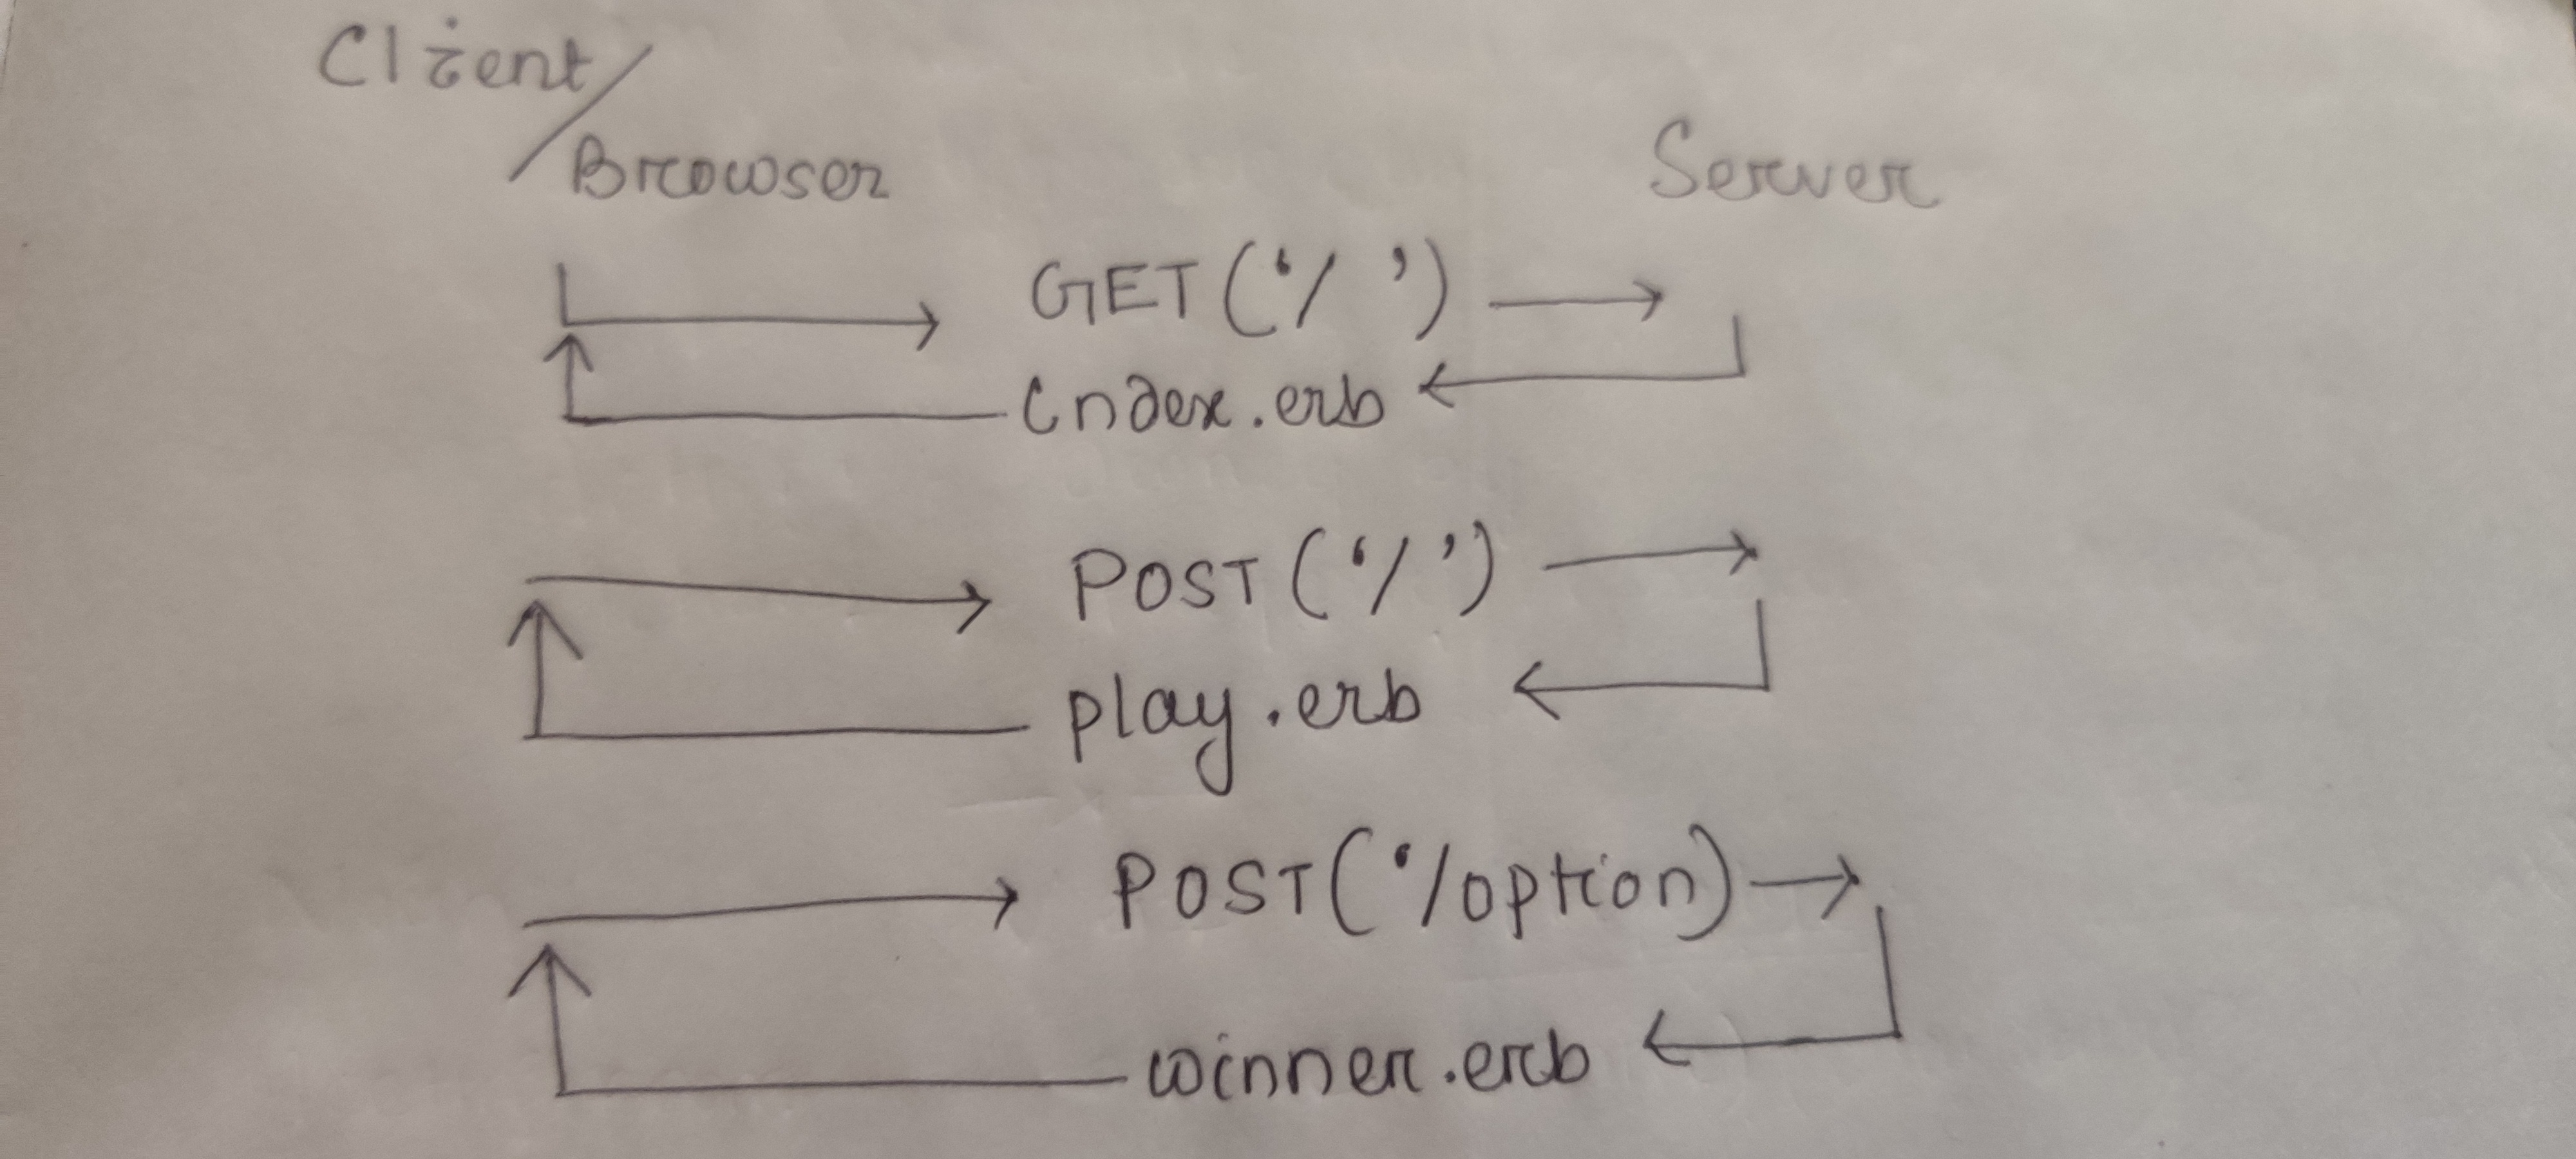 Client/
Browser
Server
GET('/ ')
index.erb
POST('/')
play.erb
POST('/option)
winner.erb